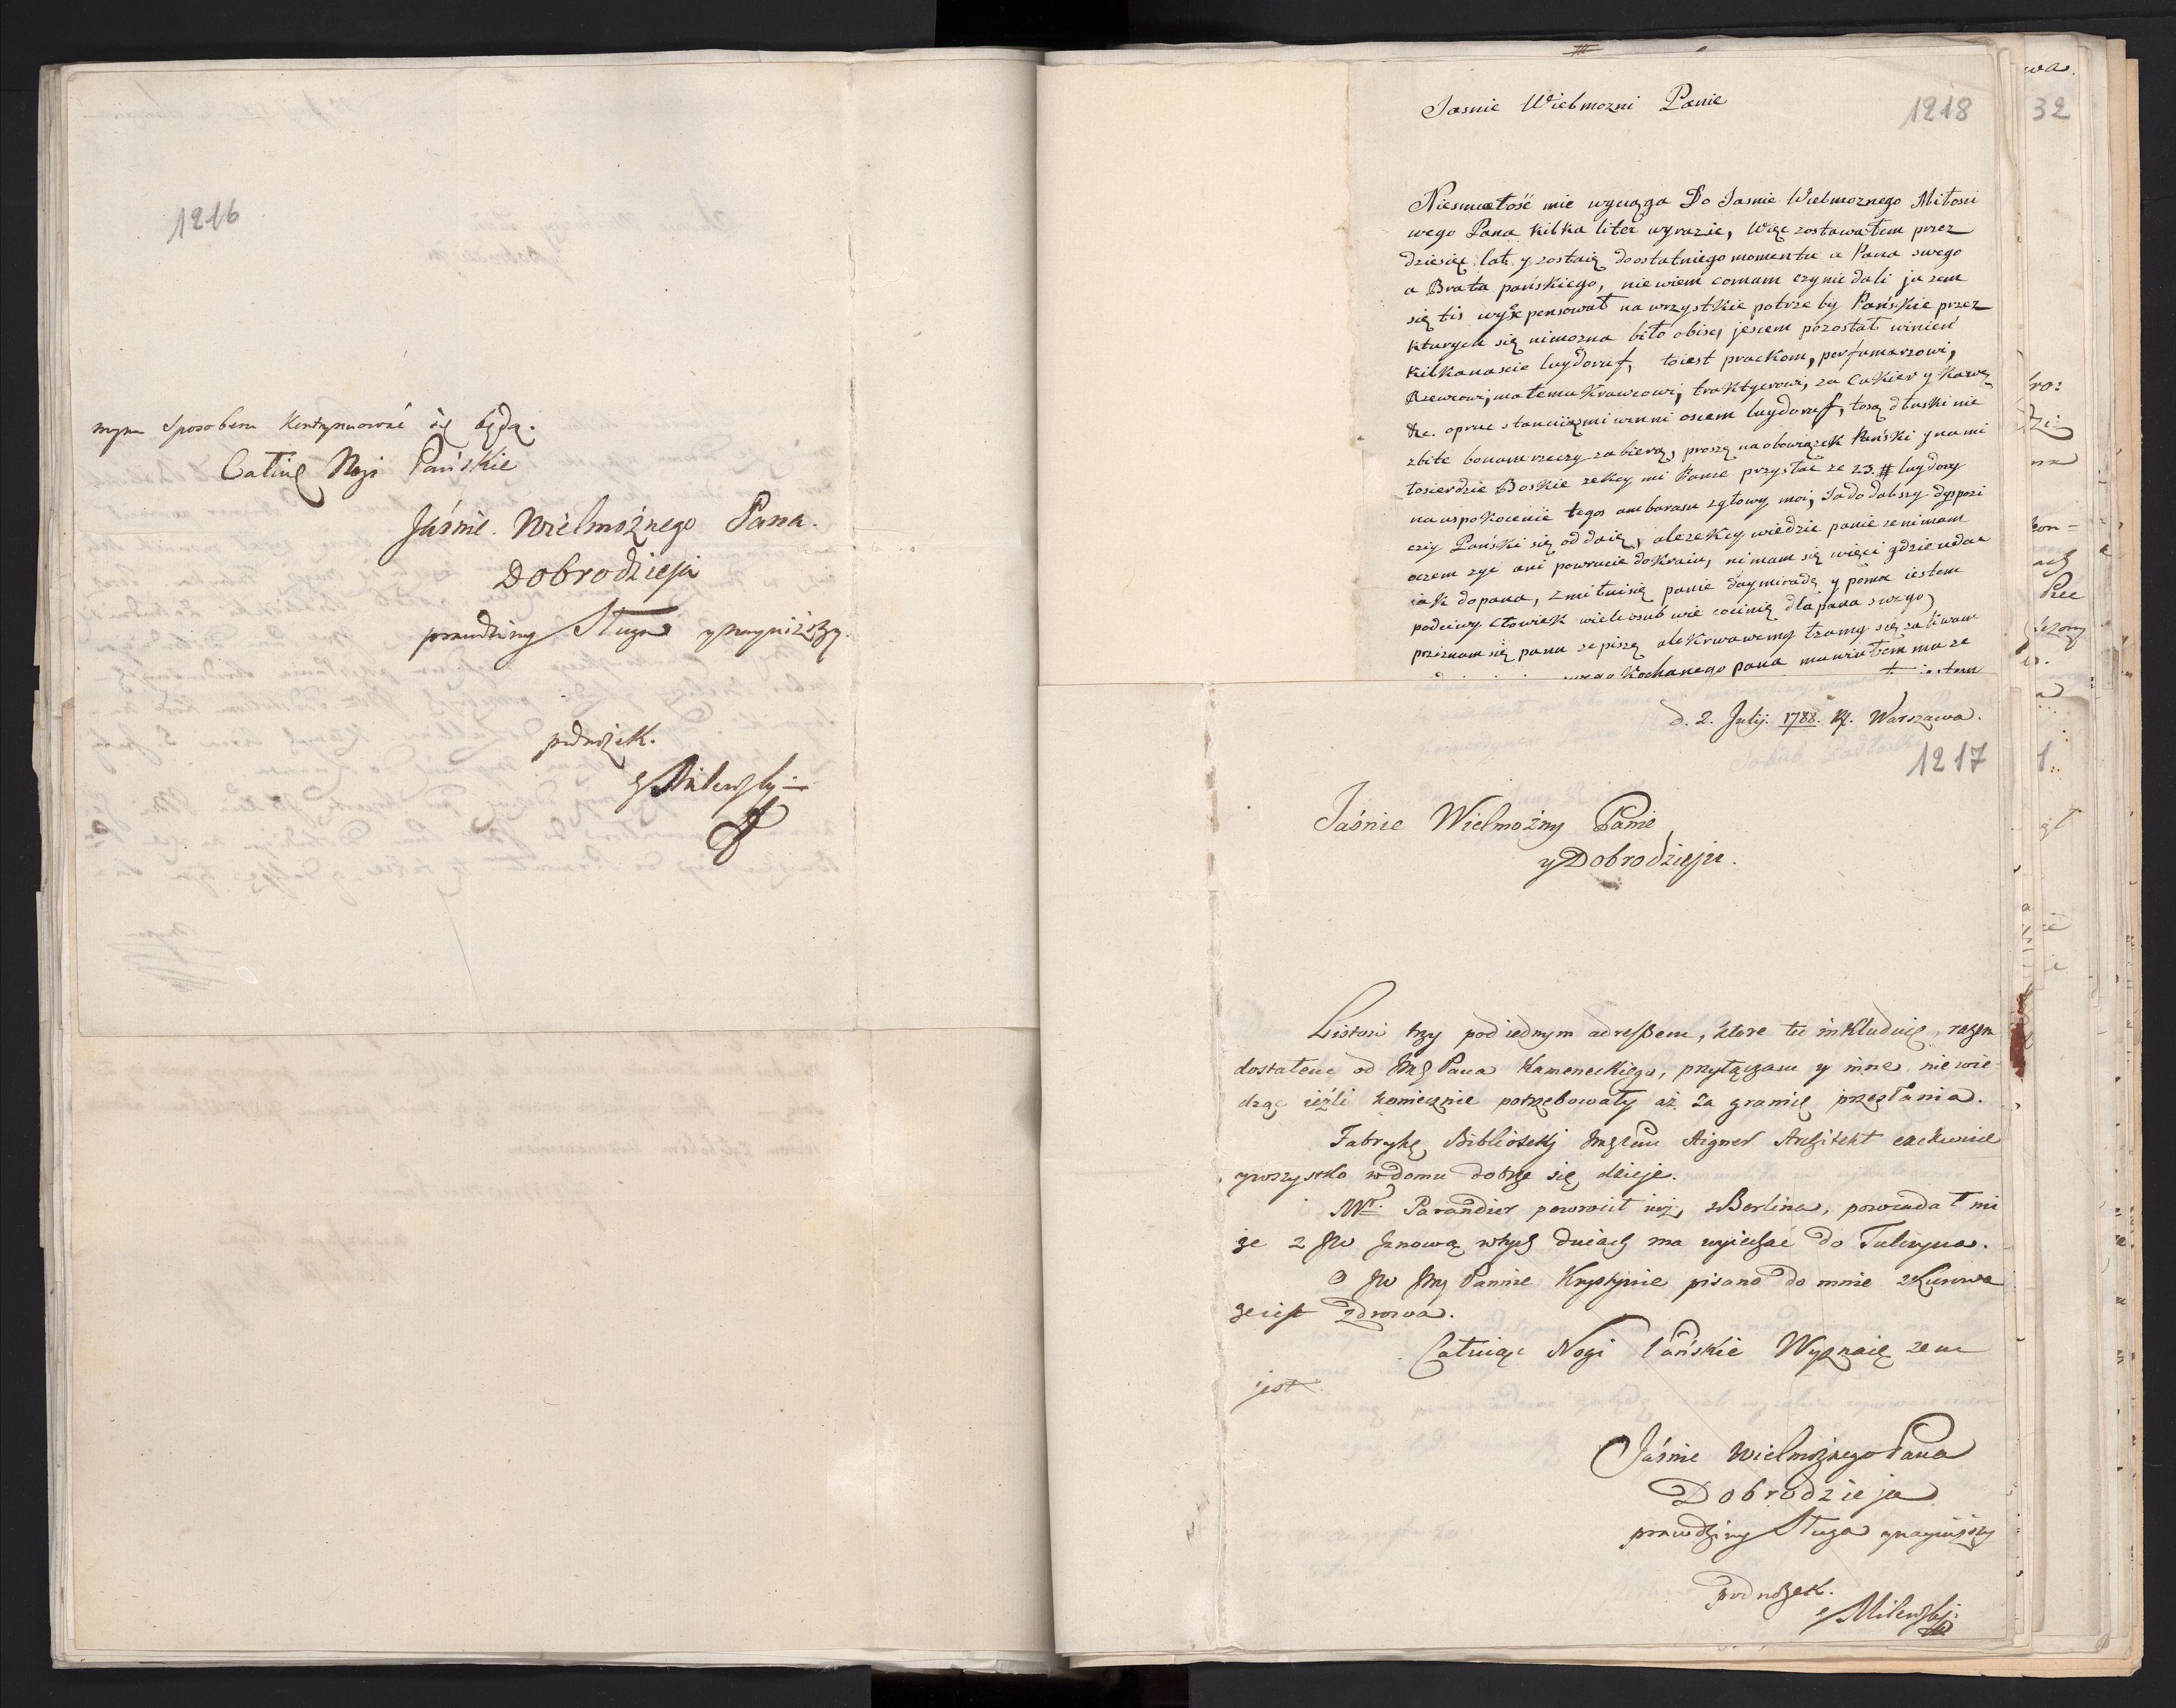 1216
mym sposobem kontynuować się będą.
Całuię Nogi Pańskie
Jáśnie Wielmożnego Pana.
Dobrodzieja
prawdziwy Sługa y naynizszy.
podnożek.
Milewski
Jasnie Wielmozni Panie
1218
Niesmiałość mie wyciąga Do Jasnie Wielmoznego Miłosci
wego Pana kilka liter wyrazic, Więc zostawałem przez
dziesięc lat y zostaię do ostatniego momentu u Pana swego
a Brata pańskiego, nie wiem co mam czynic dali ja zem
się tis wyxpensował na wszystkie potrzeby Pańskie przez
kturych się nimozna biło obise, jescem pozostał winień
kilkanascie luydoruf, toiest praczkom, perfumarzowi,
Szewcowi, małemu Krawcowi, traktyerowi, za Cukier y Kawę
&c. opruc stancii są mi winni osiem luydoruf, to są dłuski nie
zbite bo nam rzeczy zabierą, proszę na obowiązek Pański y na mi
łosierdzie Boskie zekcy mi Panie przysłac ze 23. # luydory
na uspokoienie tegos ambarasu z głowy moi, Ja do dalszy dyspozi
cziy Pański się oddaię, ale zekcy wiedzie panie ze nimam
oczem zyc ani powrucic do Kraiu, ni mam się więci gdzie udac
iak do pana, zmiłuisię panie day mi radę y pomoc iestem
podciwy człowiek wieli osub wie co cinię dla pana swego,
priznam się panu ze piszę ale krwawemy łzamy się zaliwam
swego Kochanego pana mawiałem mu ze
iestem
d. 2. Julij. 1788. R. Warszawa.
1217
Jaśnie Wielmożny Panie
y Dobrodzieju.
Listow trzy pod iednym adressem, ktore tu inkluduię, razem
dostałem od Jmć Pana Kameneckiego, przyłączam y inne, nie wie
dząc ieźli koniecznie potrzebowały aż za granicę przesłania.
Fabrykę Biblioteki Jmć Pan Aigner Architekt exekwuie
y wszystko w domu dobrze się dzieje.
Mr. Parandier powrocił iuż z Berlina, powiadał mi
że z JW Jenową w tych dniach ma wyiechać do Tulczyna.
O JW Jmć Pannie Krystynie pisano do mnie z Kurowa
że iest zdrowa.
Całuiąc Nogi Pańskie Wyznaię zem
jest
Jáśnie Wielmożnego Pana
Dobrodzieja
prawdziwy Sługa y nayniższy
podnożek.
Milewski
32